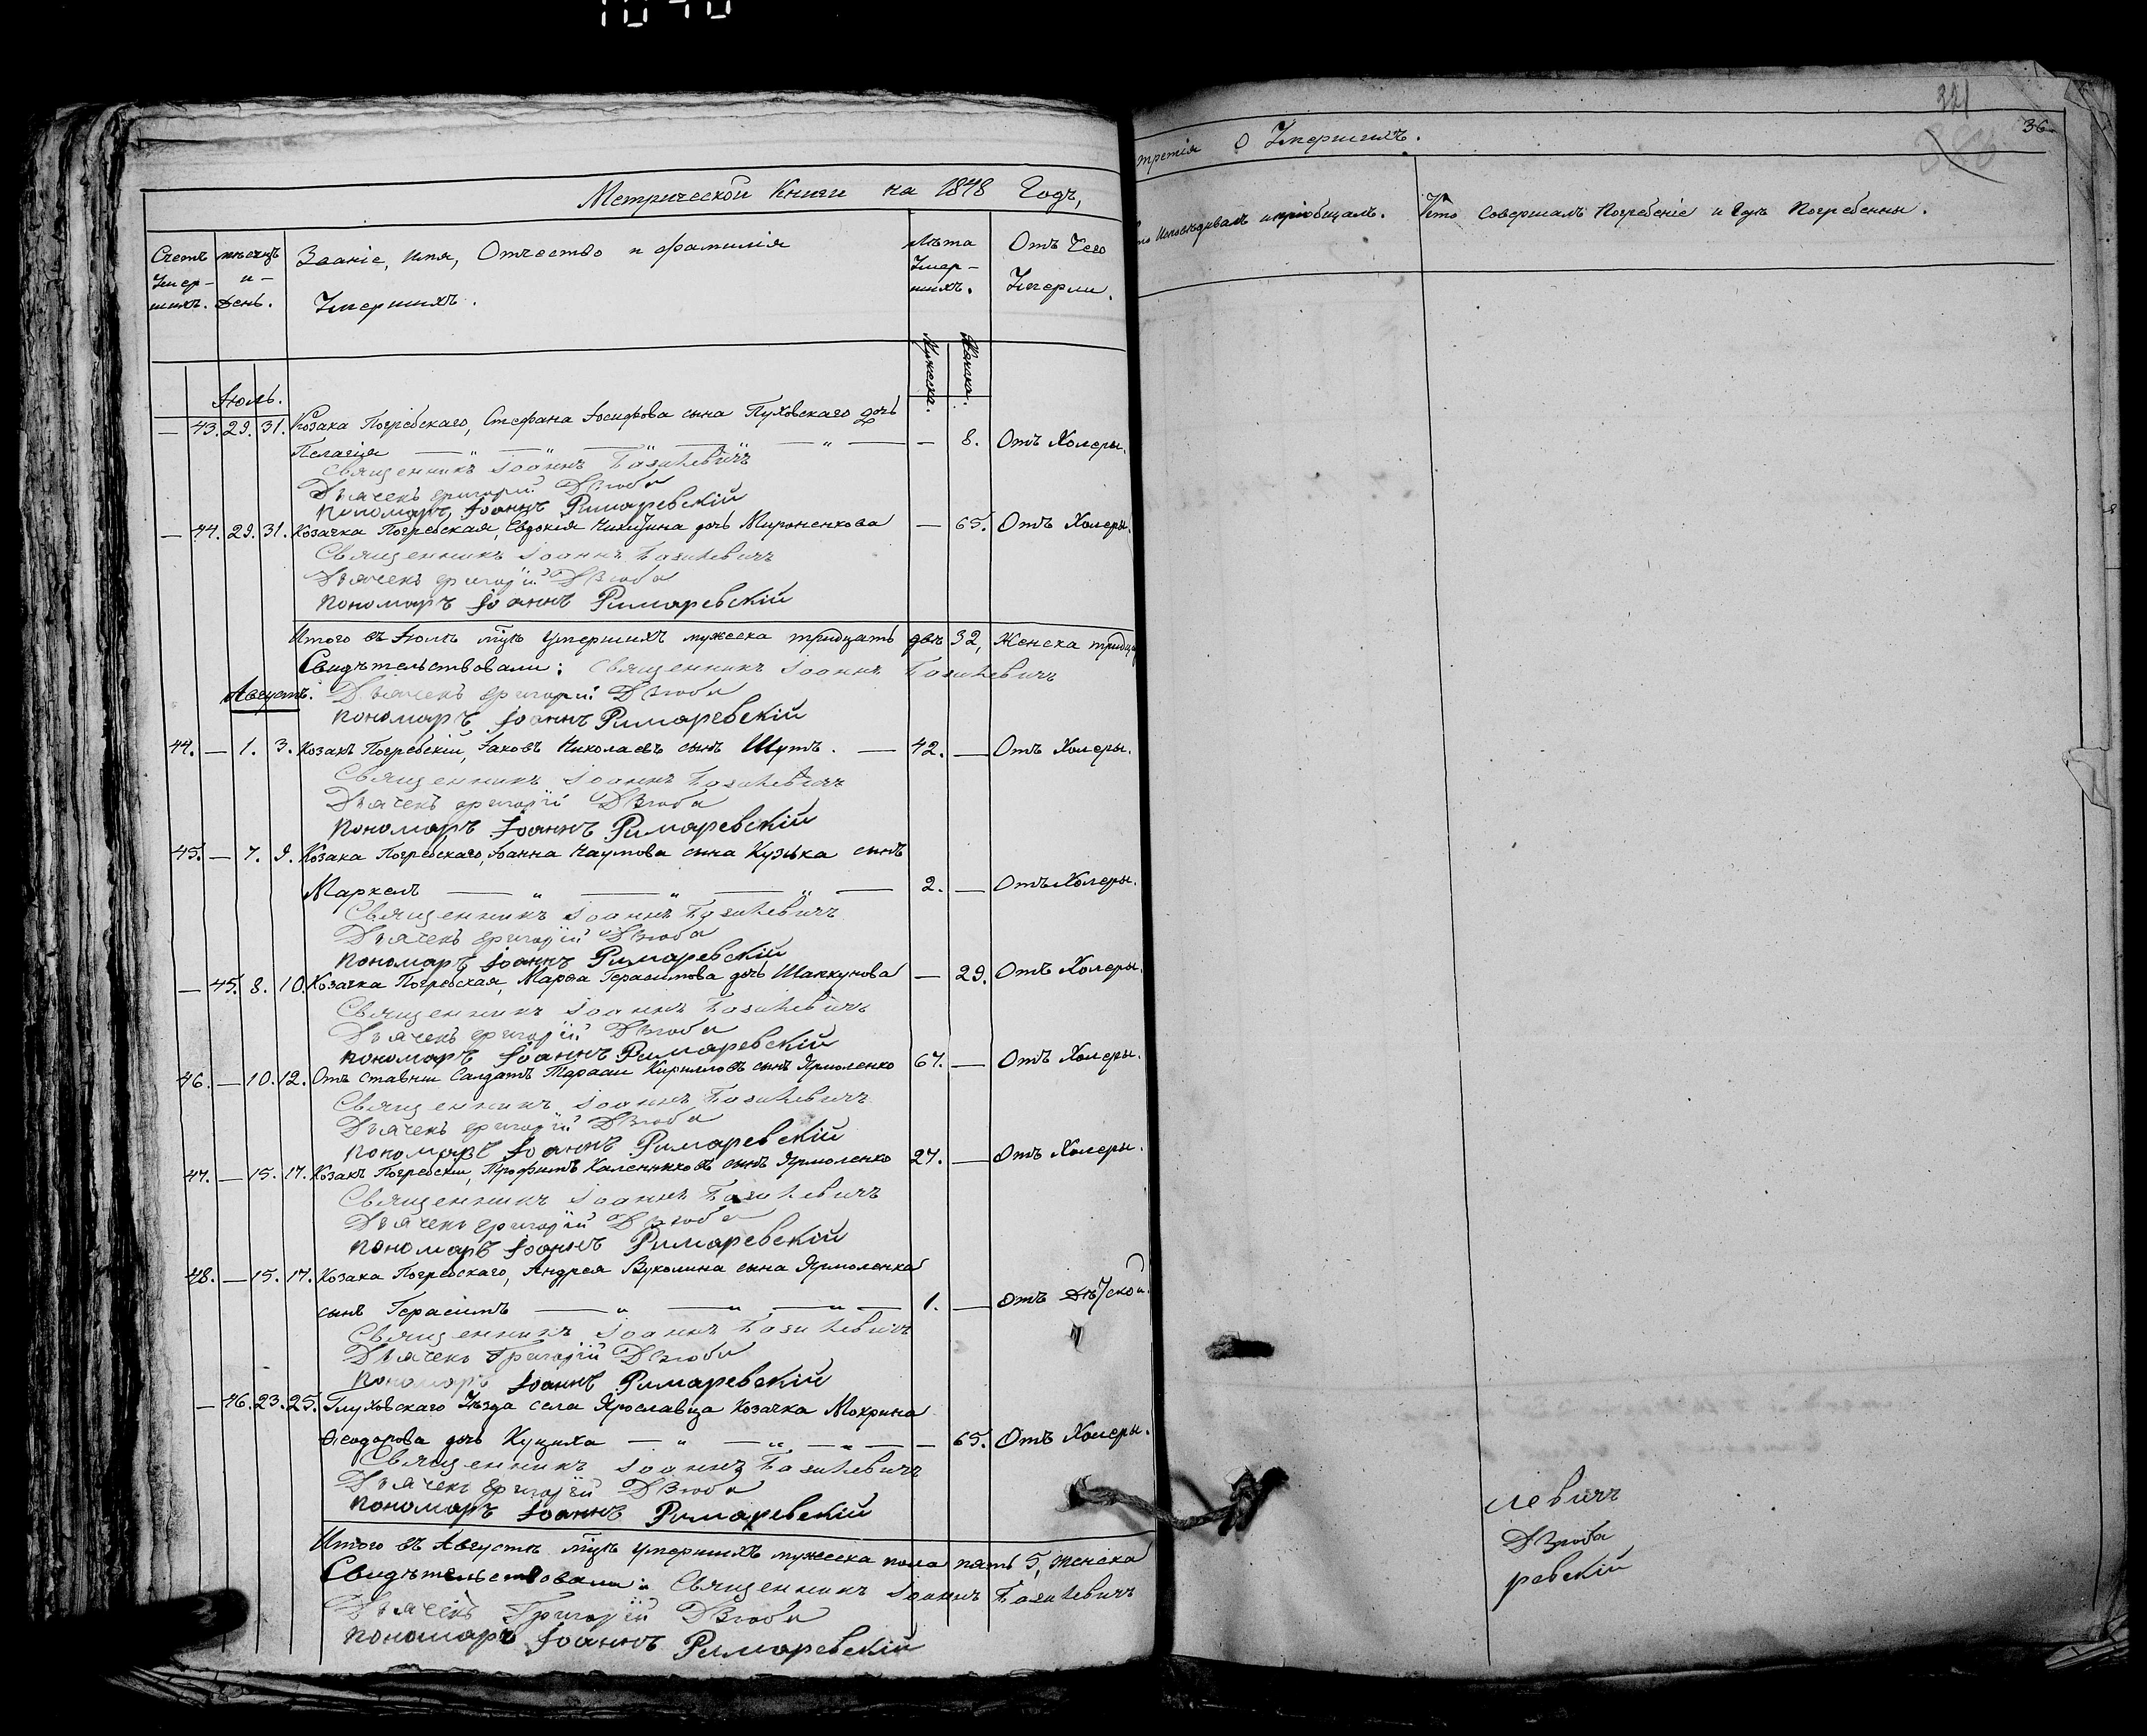 1040
Метрической Книги на 1848 Годъ,
Счетъ Умер-шихъ.
мѣсяцъ и день.
Званіе, имя, Отчество и фамилія
Умершихъ.
Лѣта Умер-шихъ.
Отъ Чего Умерли.
Мужеска.
Женска.
Іюль.
— 43. 29. 31. Козака Погребскаго, Стефана Іосифова сына Пуховскаго дочь
Пелагія — „ — „ — „ — „ — — 8. Отъ Холеры.
Священникъ Іоаннъ Базилевичъ
Дьячекъ Григорій Дзюба
Пономаръ Іоаннъ Римаревскій
— 44. 29. 31. Козачка Погребская, Евдокія Никитина дочь Мироненкова — 65. Отъ Холеры.
Священникъ Іоаннъ Базилевичъ
Дьячекъ Григорій Дзюба
Пономаръ Іоаннъ Римаревскій
Итого въ Іюлѣ мцѣ умершихъ мужеска тридцать два 32, Женска
Свидѣтельствовали: Священникъ Іоаннъ Базилевичъ
Августъ. Дьячекъ Григорій Дзюба
Пономаръ Іоаннъ Римаревскій
44. — 1. 3. Козакъ Погребскій, Іаковъ Николаевъ сынъ Шутъ. — 42. — Отъ Холеры.
Священникъ Іоаннъ Базилевичъ
Дьячекъ Григорій Дзюба
Пономаръ Іоаннъ Римаревскій
45. — 7. 9. Козака Погребскаго, Іоанна Наумова сына Кузька сынъ
Маркелъ — „ — „ — „ — 2. — Отъ Холеры.
Священникъ Іоаннъ Базилевичъ
Дьячекъ Григорій Дзюба
Пономаръ Іоаннъ Римаревскій
— 45. 8. 10. Козачка Погребская, Марѳа Герасимова дочь — 29. Отъ Холеры.
Священникъ Іоаннъ Базилевичъ
Дьячекъ Григорій Дзюба
Пономаръ Іоаннъ Римаревскій
46. — 10. 12. Отъ ставни Салдатъ Тарасій Кирилловъ сынъ Ярмоленко 67. — Отъ Холеры.
Священникъ Іоаннъ Базилевичъ
Дьячекъ Григорій Дзюба
Пономаръ Іоаннъ Римаревскій
47. — 15. 17. Козакъ Погребскій, Трофимъ Калениковъ сынъ Ярмоленко 27. — Отъ Холеры.
Священникъ Іоаннъ Базилевичъ
Дьячекъ Григорій Дзюба
Пономаръ Іоаннъ Римаревскій
48. — 15. 17. Козака Погребскаго, Андрея Вуколина сына Ярмоленка
сынъ Герасимъ — „ — „ — „ — 1. — Отъ Дѣтской.
Священникъ Іоаннъ Базилевичъ
Дьячекъ Григорій Дзюба
Пономаръ Іоаннъ Римаревскій
— 46. 23. 25. Глуховскаго Уѣзда села Ярославца Козачка Мокрина
Ѳеодорова дочь Куциха — „ — „ — „ — — 65. Отъ Холеры.
Священникъ Іоаннъ Базилевичъ
Дьячекъ Григорій Дзюба
Пономаръ Іоаннъ Римаревскій
Итого въ Августѣ мцѣ умершихъ мужеска пола пять 5, Женска
Свидѣтельствовали: Священникъ Іоаннъ Базилевичъ
Дьячекъ Григорій Дзюба
Пономаръ Іоаннъ Римаревскій
321
36
третія О Умершихъ.
Исповѣдывалъ и пріобщалъ.
Кто Совершалъ Погребеніе и Гдѣ Погребенны.
левичъ
Дзюба
ревскій